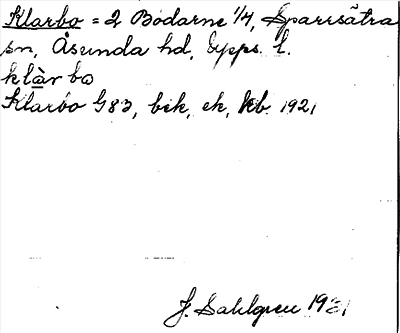 Klarbo = 2 Bodarne 1/4, Sparrsätra
sn, Åsunda hd, Upps. l.
klàr bo
Klarbo G 83, bik, ek, kb 1921
J. Sahlgren 1931